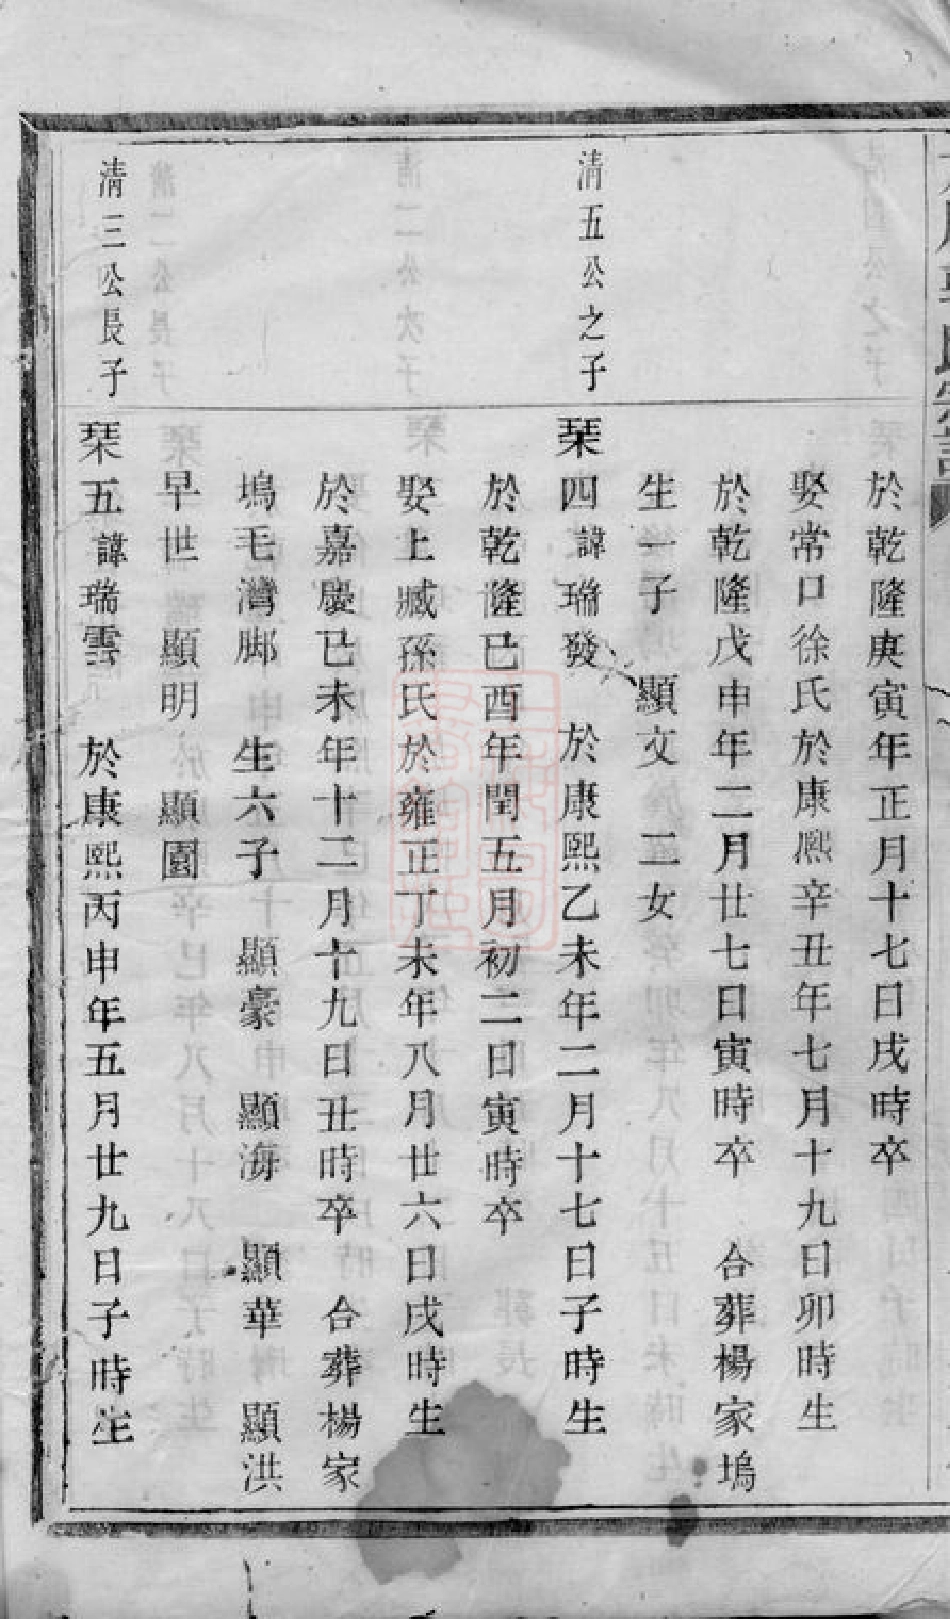 於乾隆庚寅年正月十七日戌時卒
娶常口徐氏於康熈辛丑年七月十九日卯時生
於乾隆戊申年二月廿七日寅時卒　合葬楊家塢
生一子　顯文　二女
清五公之子
栞四諱瑞發　於康熙乙未年二月十七日子時生
於乾隆已酉年閏五月初二日寅時卒
娶上臧孫氏於雍正丁未年八月廿六日戌時生
於嘉慶已未年十二月十九日丑時卒　合葬楊家
塢毛灣脚　生六子　顯豪　顯海　顯華　顯洪
早世　顯明　顯園
清三公長子
栞五諱瑞雲　於康熙丙申年五月廿九日子時生